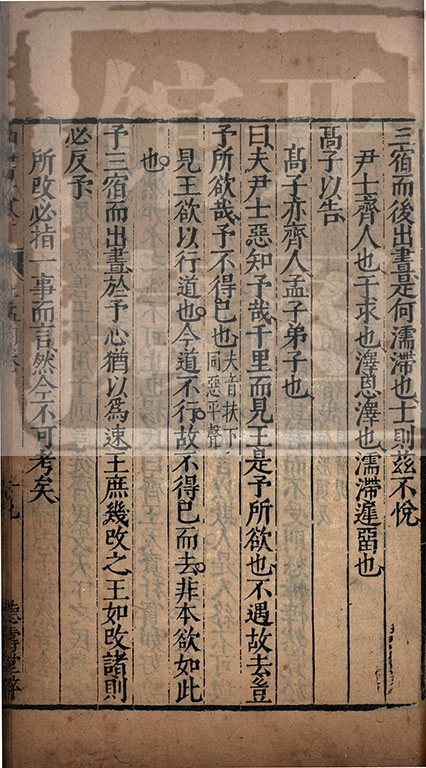 三宿而後出晝是何濡滯也士則茲不悅
尹士齊人也干求也澤恩澤也濡滯遲留也
高子以告
高子亦齊人孟子弟子也
曰夫尹士惡知予哉千里而見王是予所欲也不遇故去豈
予所欲哉予不得已也夫音扶下同惡平聲
見王欲以行道也今道不行故不得已而去非本欲如此
也
予三宿而出晝於予心猶以為速王庶幾改之王如改諸則
必反予
所改必指一事而言然今不可考矣